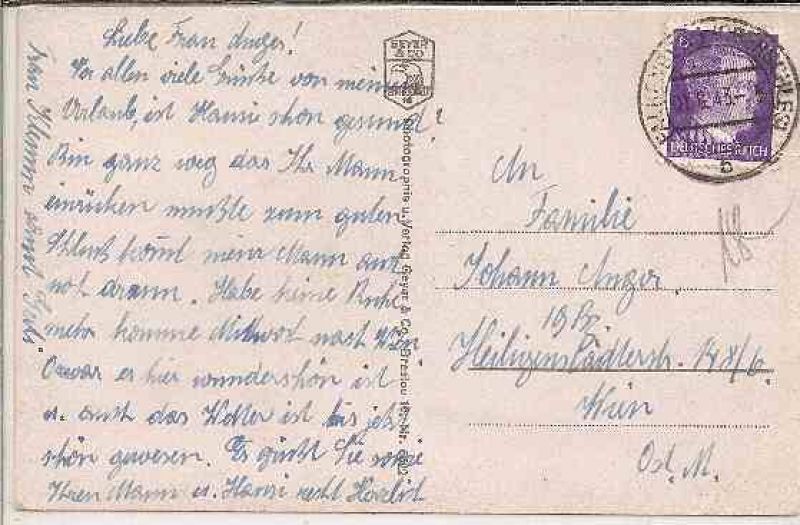 Liebe Frau Anger!
Vor allen viele Grüße von meinem
Urlaub, ist Hansi schon gesund?
Bin ganz weg das Ihr Mann
einrücken mußte zum guten
Schluß kommt mein Mann auch
noch darann. Habe keine Ruhe
mehr komme Mittwoch nach Wien
Ozwar es hier wunderschön ist
u. auch das Wetter ist bis jetzt
schön gewesen. Es grüßt Sie sowie
Ihren Mann u. Hansi recht Herzlich
Frau
GEYER
& CO
BRESLAU
Photographie u. Verlag Geyer & Co., Breslau 16.
6
DEUTSCHES REICH
43
b
An
Familie
Johann Anger
19 Bz.
Heiligenstädterstr.
Wien
Ost. M.